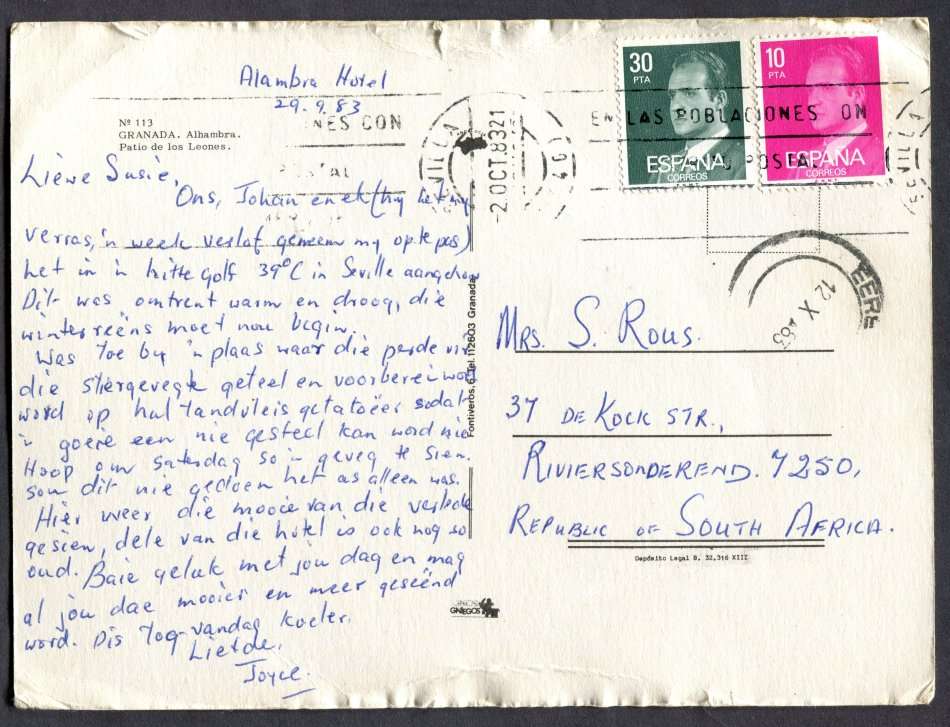 Alambra Hotel
29.9.83
Nº 113
GRANADA. Alhambra.
Patio de los Leones.
Liewe Susie,
Ons, Johan en ek (hy het my
verras, 'n week verlof geneem my op te pas)
het in 'n hitte golf 39°C in Seville aangekom
Dit was omtrent warm en droog, die
winter reëns moet nou begin.
Was toe by 'n plaas waar die perde vir
die stiergevegte geteel en voorberei word
word op hul tandvleis getatoëer sodat
'n goeie een nie gesteel kan word nie
Hoop om saterdag so 'n geveg te sien.
sou dit nie gedoen het as alleen was.
Hier weer die mooie van die verlede
gesien, dele van die hotel is ook nog so
oud. Baie geluk met jou dag en mag
al jou dae mooier en meer geseënd
word. Dis tog vandag koeler.
Liefde.
Joyce.
Fontiveros, 6. Tel. 112603 Granada
NES CON
STAL
SEVILLA
-2 OCT. 83 21
(401)
EN LAS POBLACIONES CON
POSTAL
SEVILLA
30
PTA
ESPAÑA
CORREOS
10
PTA
ESPAÑA
CORREOS
EERE
12 X 83
Mrs. S. Rous.
37 DE KOCK STR.,
RIVIERSONDEREND. 7250,
REPUBLIC OF SOUTH AFRICA.
Depósito Legal B. 32.316 XIII
GALLEGOS